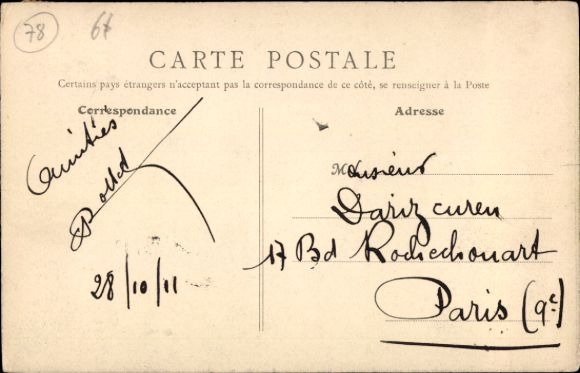 78
6f
CARTE POSTALE
Certains pays étrangers n'acceptant pas la correspondance de ce côté, se renseigner à la Poste
Correspondance
Adresse
Amitiés
28/10/11
Monsieur
17 Bd Rochechouart
Paris (9e)